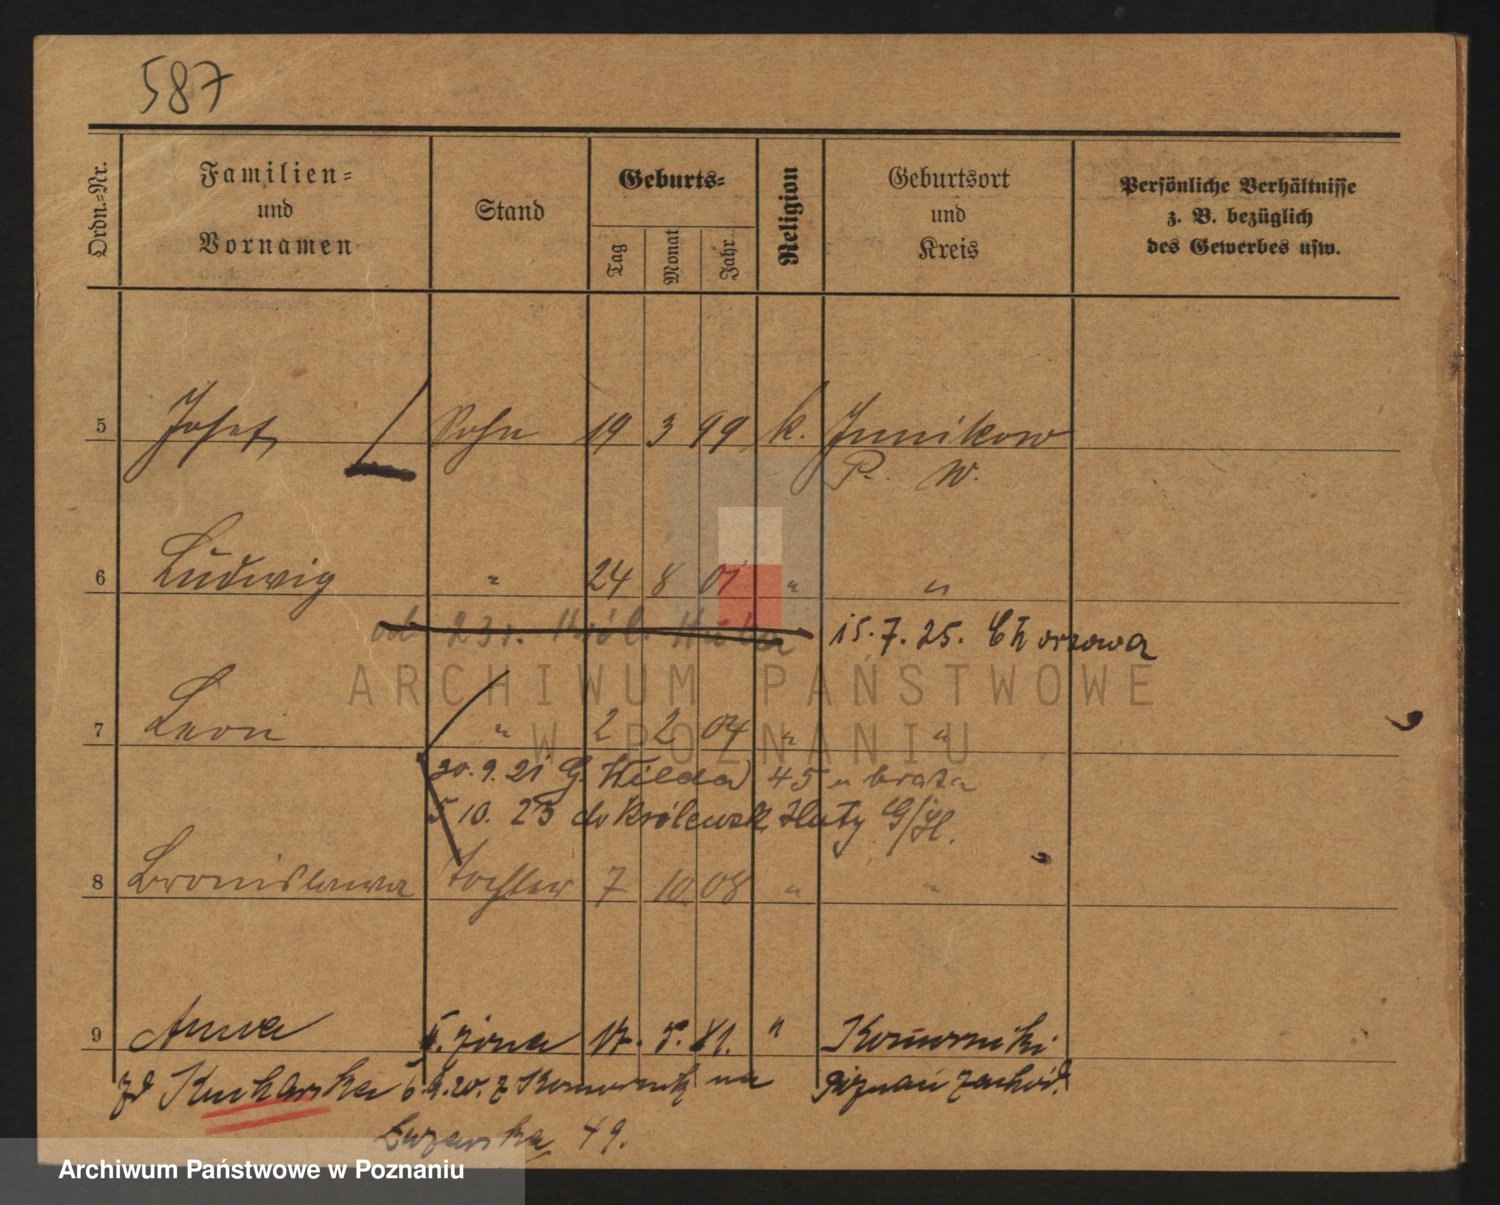 587
Ordn.-Nr.
Familien-
und
Vornamen
Stand
Geburts-
Tag
Monat
Jahr
Religion
Geburtsort
und
Kreis
Persönliche Verhältnisse
z. B. bezüglich
des Gewerbes usw.
5 Josef Sohn 19 3 99 k. Junikow
P. W.
6 Ludwig " 24 8 01 " "
od 23 r. Król. Huta 15.7.25. Chorzowa
7 Leon " 2 2 04 " "
20.9.21 G. Wilda 45 u brata
5 10. 23 do Królewsk Huty G/Śl.
8 Bronislawa Tochter 7 10 08 " "
9 Anna II. żona 17. 5. 81. " Komorniki
zd Kucharska 6.9.20. z Komornik na Poznań zachód.
49.
ARCHIWUM PAŃSTWOWE
W POZNANIU
Archiwum Państwowe w Poznaniu